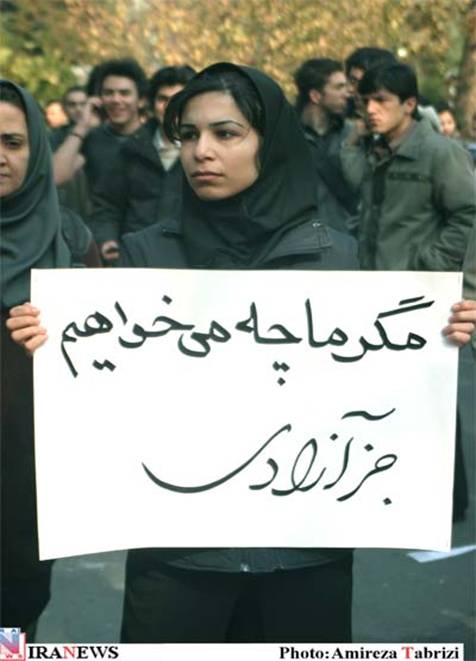 مگر ما چه می‌خواهیم
جز آزادی
IRANEWS
Photo: Amireza Tabrizi